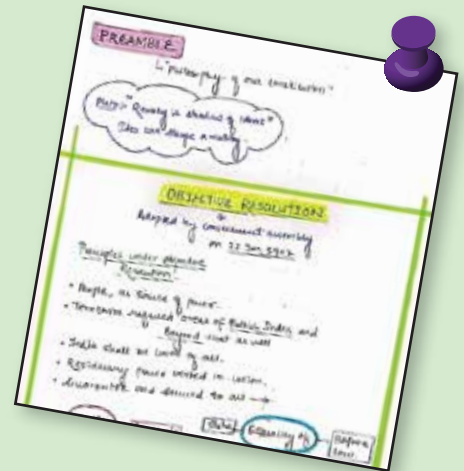 PREAMBLE
"philosophy of our constitution"
Plato: "Reality is shadow of ideas"
Idea can shape reality
OBJECTIVE RESOLUTION
Adopted by constituent assembly
on 22 Jan, 1947
Principles under objective
Resolution:
• People, as source of power.
• Territories required areas of British India and
Beyond that as well
• India shall be land of all.
• Residuary power vested in union.
• Guarantee and secured to all →
Belief
Equality of
Before
law